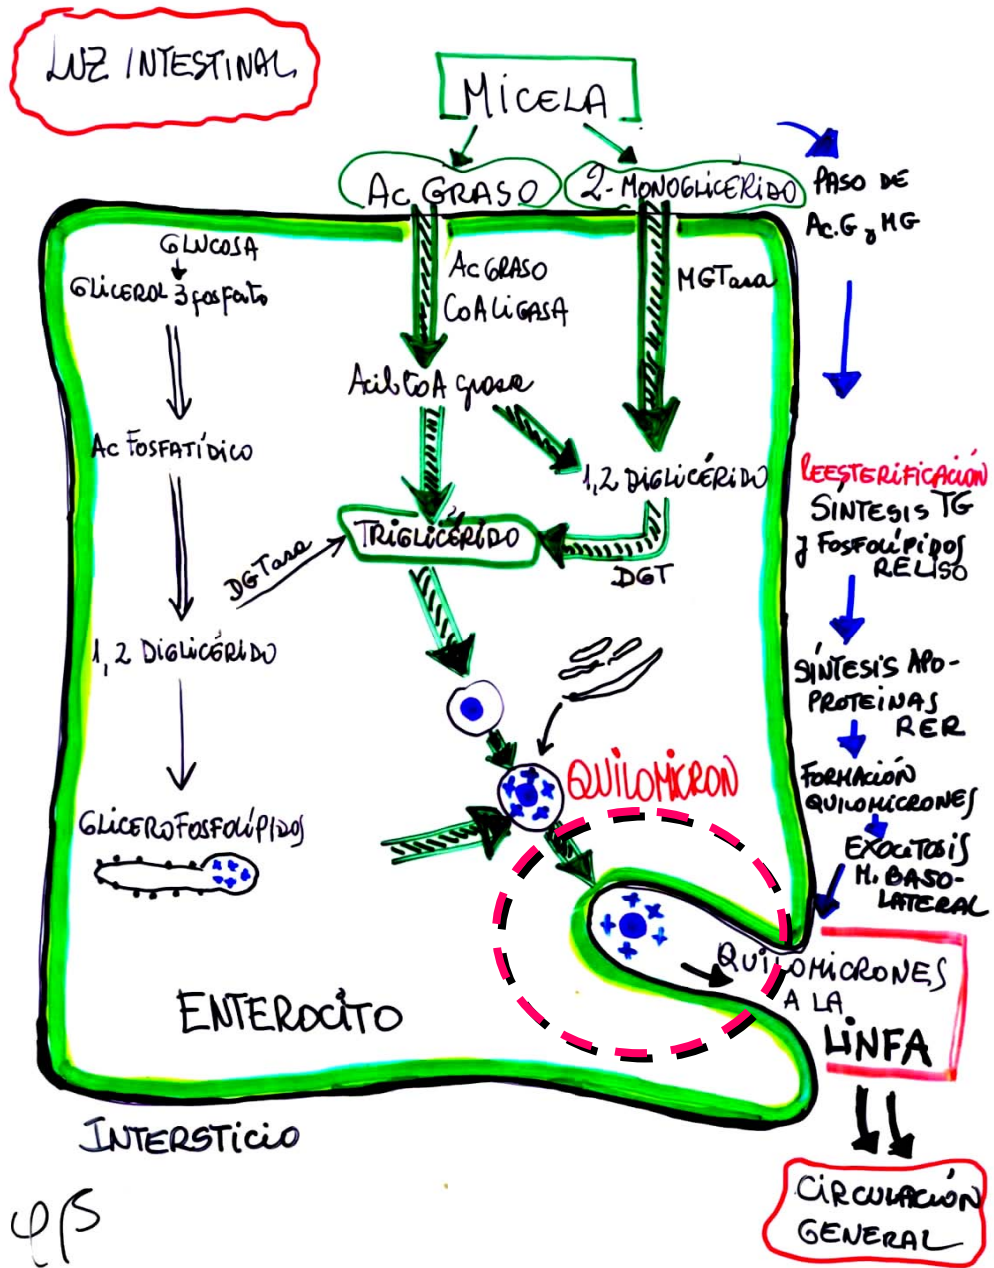 LUZ INTESTINAL
MICELA
AC GRASO
2-MONOGLICÉRIDO
PASO DE
AC.G y MG
GLUCOSA
GLICEROL 3 fosfato
AC GRASO
COALIGASA
MGTasa
Acil CoA grasa
AC FOSFATÍDICO
1,2 DIGLICÉRIDO
REESTERIFICACIÓN
SÍNTESIS TG
y FOSFOLÍPIDOS
RELISO
TRIGLICÉRIDO
DGTasa
DGT
1,2 DIGLICÉRIDO
SÍNTESIS APO-
PROTEINAS
RER
QUILOMICRON
FORMACIÓN
QUILOMICRONES
GLICEROFOSFOLÍPIDOS
EXOCITOSIS
M. BASO-
LATERAL
QUILOMICRONES
A LA
LINFA
ENTEROCITO
INTERSTICIO
CIRCULACIÓN
GENERAL